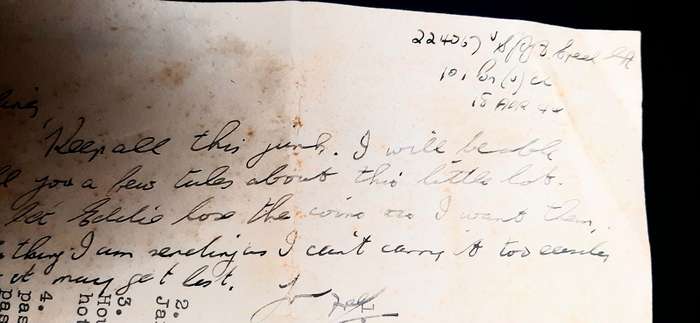 224067
101
15 APR 42
ling
Keep all this junk. I will be able
ll you a few tales about this little lot.
let Eddie lose the coins as I want them,
thing I am sending as I can't carry it too easily
it may get lost.
2.
Ja
3.
Hou
hot
4.
pas
pas